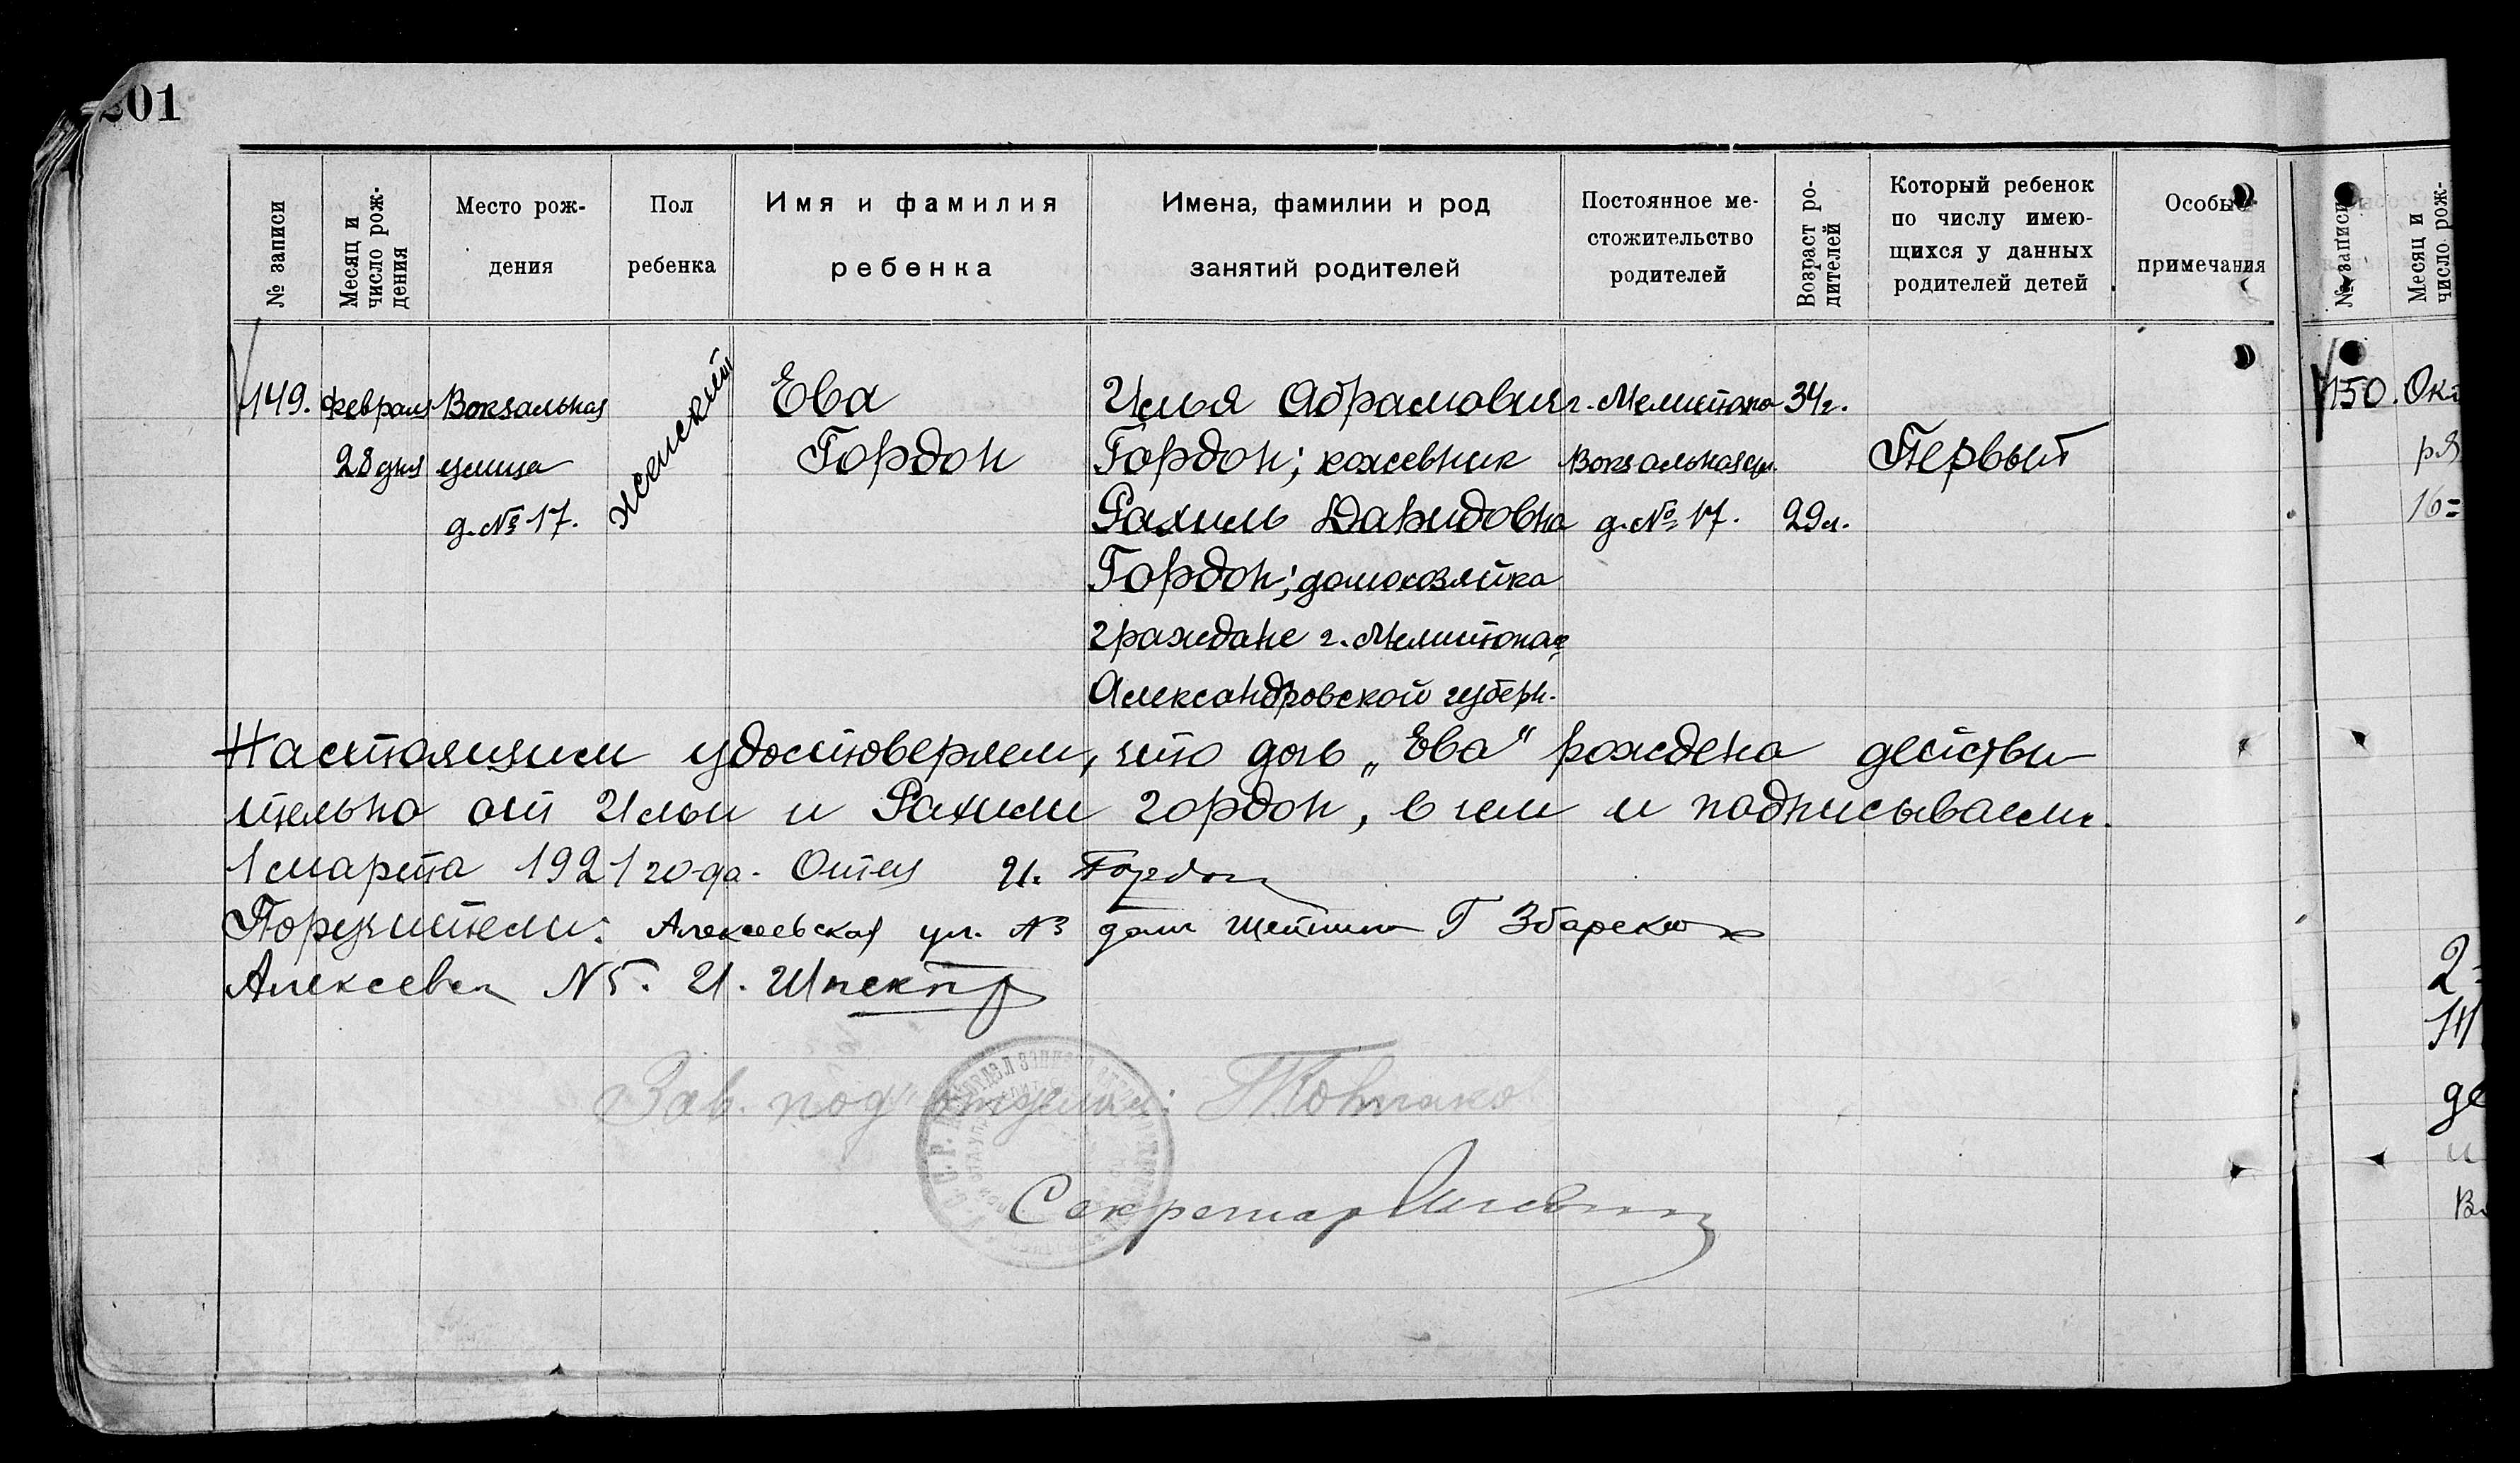 201
№ записи
Месяц и
число рож-
дения
Место рож-
дения
Пол
ребенка
Имя и фамилия
ребенка
Имена, фамилии и род
занятий родителей
Постоянное ме-
стожительство
родителей
Возраст ро-
дителей
Который ребенок
по числу имею-
щихся у данных
родителей детей
Особые
примечания
149.
Февраля
28 дня
Вокзальная
улица
д. № 17.
женский
Ева
Гордон
Илья Абрамович
Гордон; кожевник
Рахиль Давидовна
Гордон; домохозяйка
граждане г. Мелитополя,
Александровской губерн.
г. Мелитопо
Вокзальная ул.
д. № 17.
34 г.
29 л.
Первый
Настоящим удостоверяем, что дочь „Ева" рождена действи
тельно от Ильи и Рахили Гордон, в чем и подписываемс.
1 марта 1921 года. Отец И. Гордон
Поручители: Алексеевская ул. № 3 дом Г Збарский
Алексеевск N 5. И. Шпектор
Зав. подотделом:
Секретарь
№ записи
Месяц и
число рож-
150.
Окт
ря
16
2
де
и